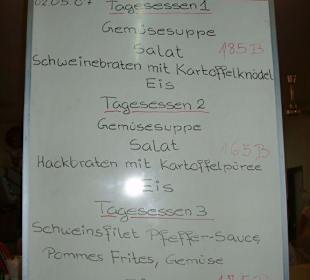 02.05.07 Tagesessen 1
Gemüsesuppe
Salat 185,B
Schweinebraten mit Kartoffelknödel
Eis
Tagesessen 2
Gemüsesuppe
Salat 165,B
Hackbraten mit Kartoffelpüree
Eis
Tagesessen 3
Schweinsfilet Pfeffer-Sauce,
Pommes Frites, Gemüse